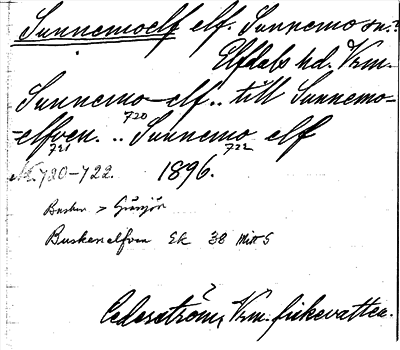 Sunnemoelf elf. Sunnemo sn.?
Elfdals hd. Vrm.
Sunnemo-elf .. till Sunnemo-
720
-elfven. .. Sunnemo elf
721 722
N. 720-722. 1896.
Busken > Grässjön
Buskenelfven Ek 38 Mitt S
Cederström, Vrm. fiskevatten.